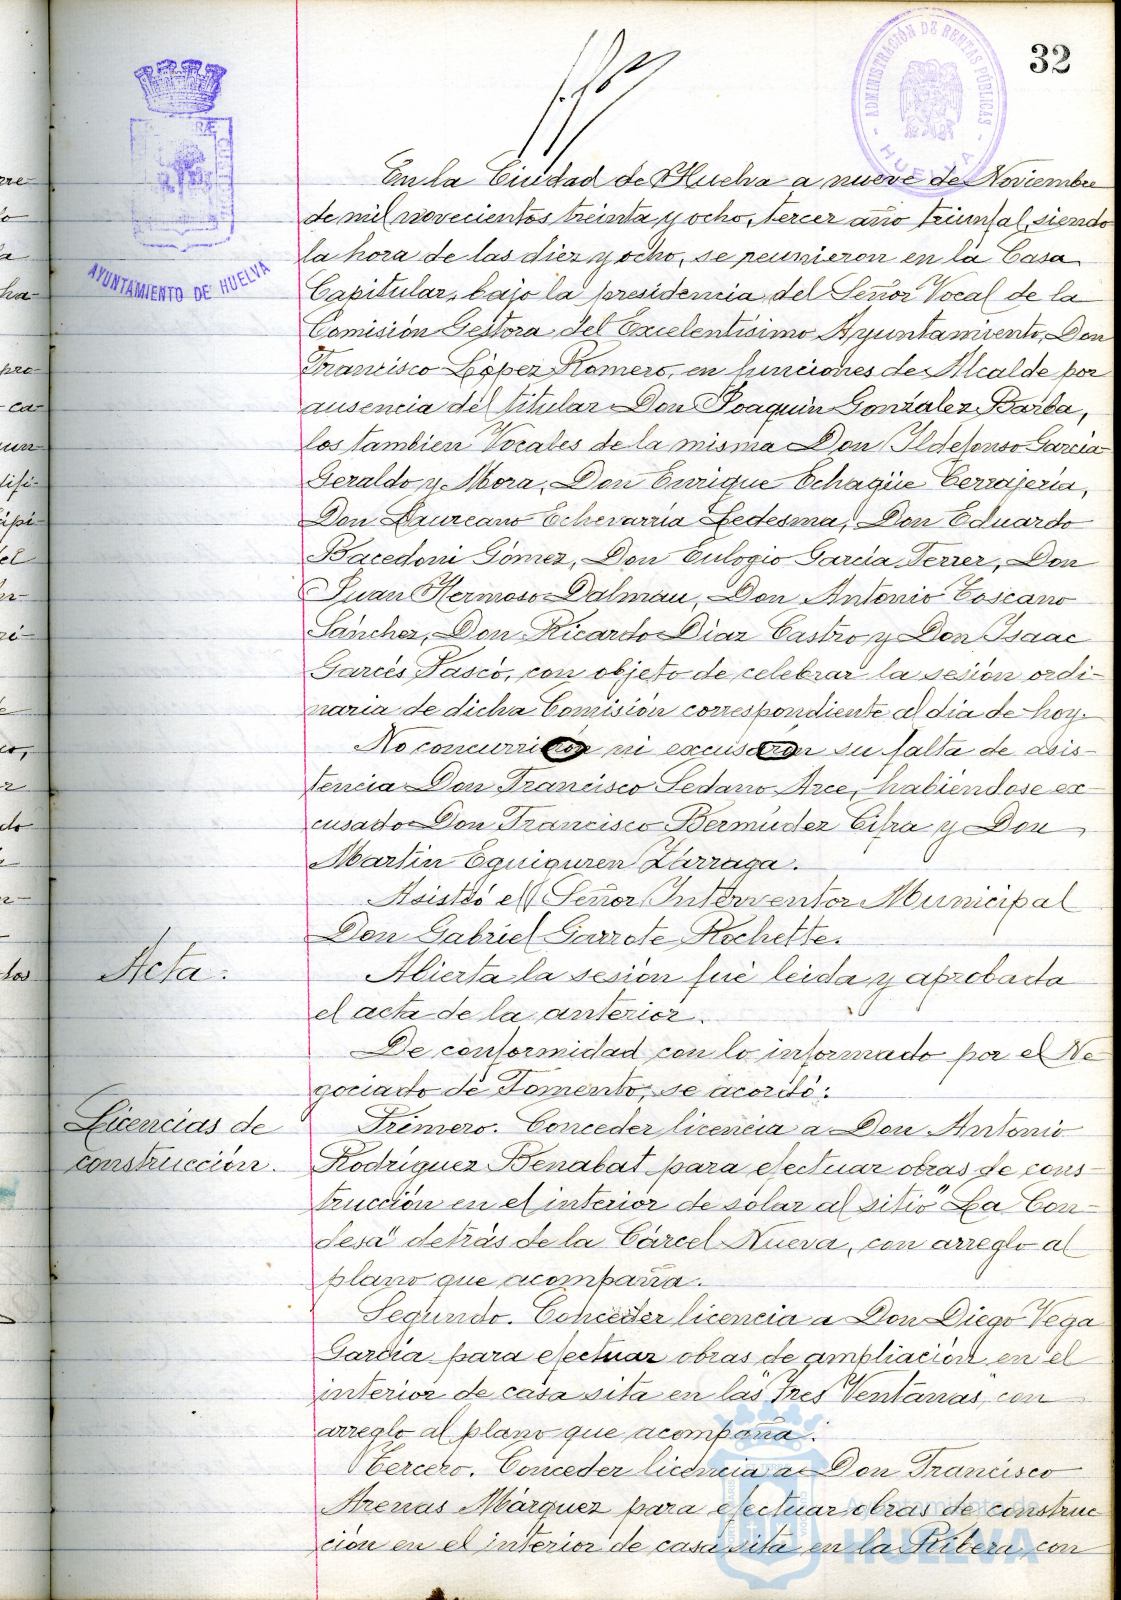 32
ADMINISTRACIÓN DE RENTAS PÚBLICAS
HUELVA
AYUNTAMIENTO DE HUELVA
En la Ciudad de Huelva a nueve de Noviembre
de mil novecientos treinta y ocho, tercer año triunfal, siendo
la hora de las diez y ocho, se reunieron en la Casa
Capitular, bajo la presidencia del Señor Vocal de la
Comisión Gestora del Excelentísimo Ayuntamiento, Don
Francisco López Romero, en funciones de Alcalde por
ausencia del titular Don Joaquín González Barba,
los tambien Vocales de la misma Don Ildefonso García
Geraldo y Mora, Don Enrique Echagüe Cerrajería,
Don Laureano Echevarría Ledesma, Don Eduardo
Bacedoni Gómez, Don Eulogio García Ferrer, Don
Juan Hermoso Dalmau, Don Antonio Toscano
Sánchez, Don Ricardo Díaz Castro y Don Isaac
Garcés Pascó, con objeto de celebrar la sesión ordi-
naria de dicha Comisión correspondiente al dia de hoy.
No concurri ni excus su falta de asis-
tencia Don Francisco Sedano Arce, habiéndose ex-
cusado Don Francisco Bermúdez Cifra y Don
Martín Eguiguren Zárraga.
Asistió el Señor Interventor Municipal
Don Gabriel Garrote Rochette.
Acta.
Abierta la sesión fué leida y aprobada
el acta de la anterior.
De conformidad con lo informado por el Ne
gociado de Fomento, se acordó:
Licencias de
construcción.
Primero. Conceder licencia a Don Antonio
Rodríguez Benabat para efectuar obras de cons-
trucción en el interior de solar al sitio "La Con-
desa" detrás de la Cárcel Nueva, con arreglo al
plano que acompaña.
Segundo. Conceder licencia a Don Diego Vega
García para efectuar obras de ampliación en el
interior de casa sita en las "Tres Ventanas", con
arreglo al plano que acompaña.
Tercero. Conceder licencia a Don Francisco
Arenas Márquez para efectuar obras de construc
ción en el interior de casa sita en la Ribera, con
Ayuntamiento de
HUELVA